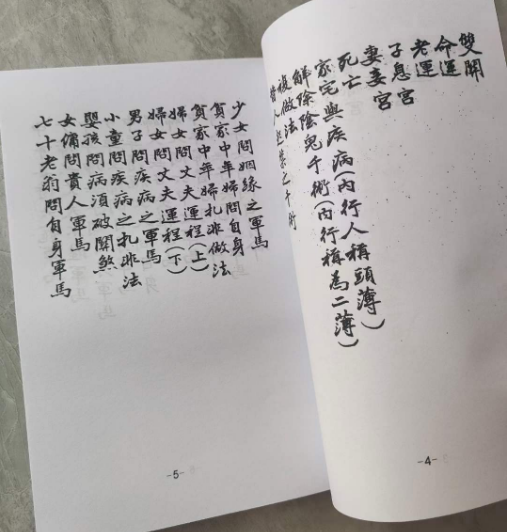 雙關
命運
老運
子息宮
妻妾宮
死亡
家宅與疾病(內行人稱頭薄)
解除陰兒千術(內行稱為二薄)
複做法
人之千術
-4-
少女問姻緣之軍馬
貧家中年婦問自身
貧家中年婦札非做法
婦女問丈夫運程(上)
婦女問丈夫運程(下)
男子問疾病之軍馬
小童問疾病之札非法
嬰孩問病須破關煞
女傭問貴人軍馬
七十老翁問自身軍馬
-5-